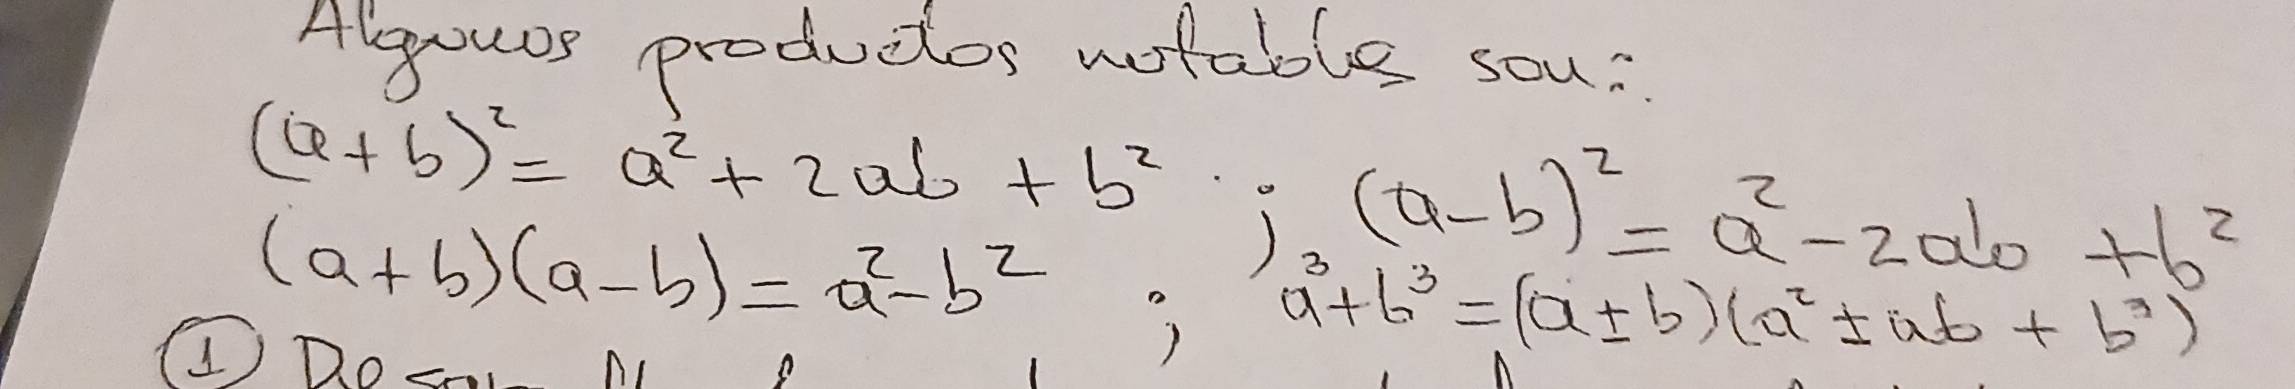 Algunos productos notables son:
(a+b)² = a² + 2ab + b² ; (a-b)² = a² - 2ab + b²
(a+b)(a-b) = a² - b² ; a³+b³ = (a±b)(a² ± ab + b²)
①